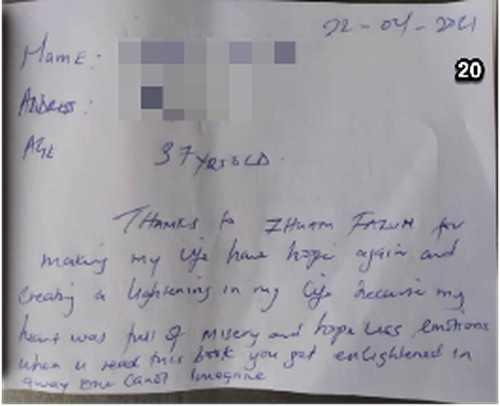 22-04-2021
Name:
20
Address:
Age 37 yrs old.
Thanks to Zhuan Falun for
making my life have hope again and
creating a lightening in my life because my
heart was full of misery and hope less emotions
when u read this book you get enlightened in
away one canot Imagine